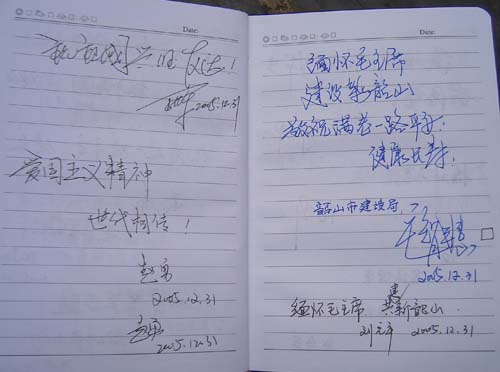 Date:
祝祖国兴旺发达!
2005.12.31
爱国主义精神
世代相传!
2005.12.31
2005.12.31
Date:
缅怀毛主席
建设新韶山
敬祝满老一路平安!
健康长寿!
韶山市建设局
2005.12.31
缅怀毛主席 共建新韶山.
2005.12.31